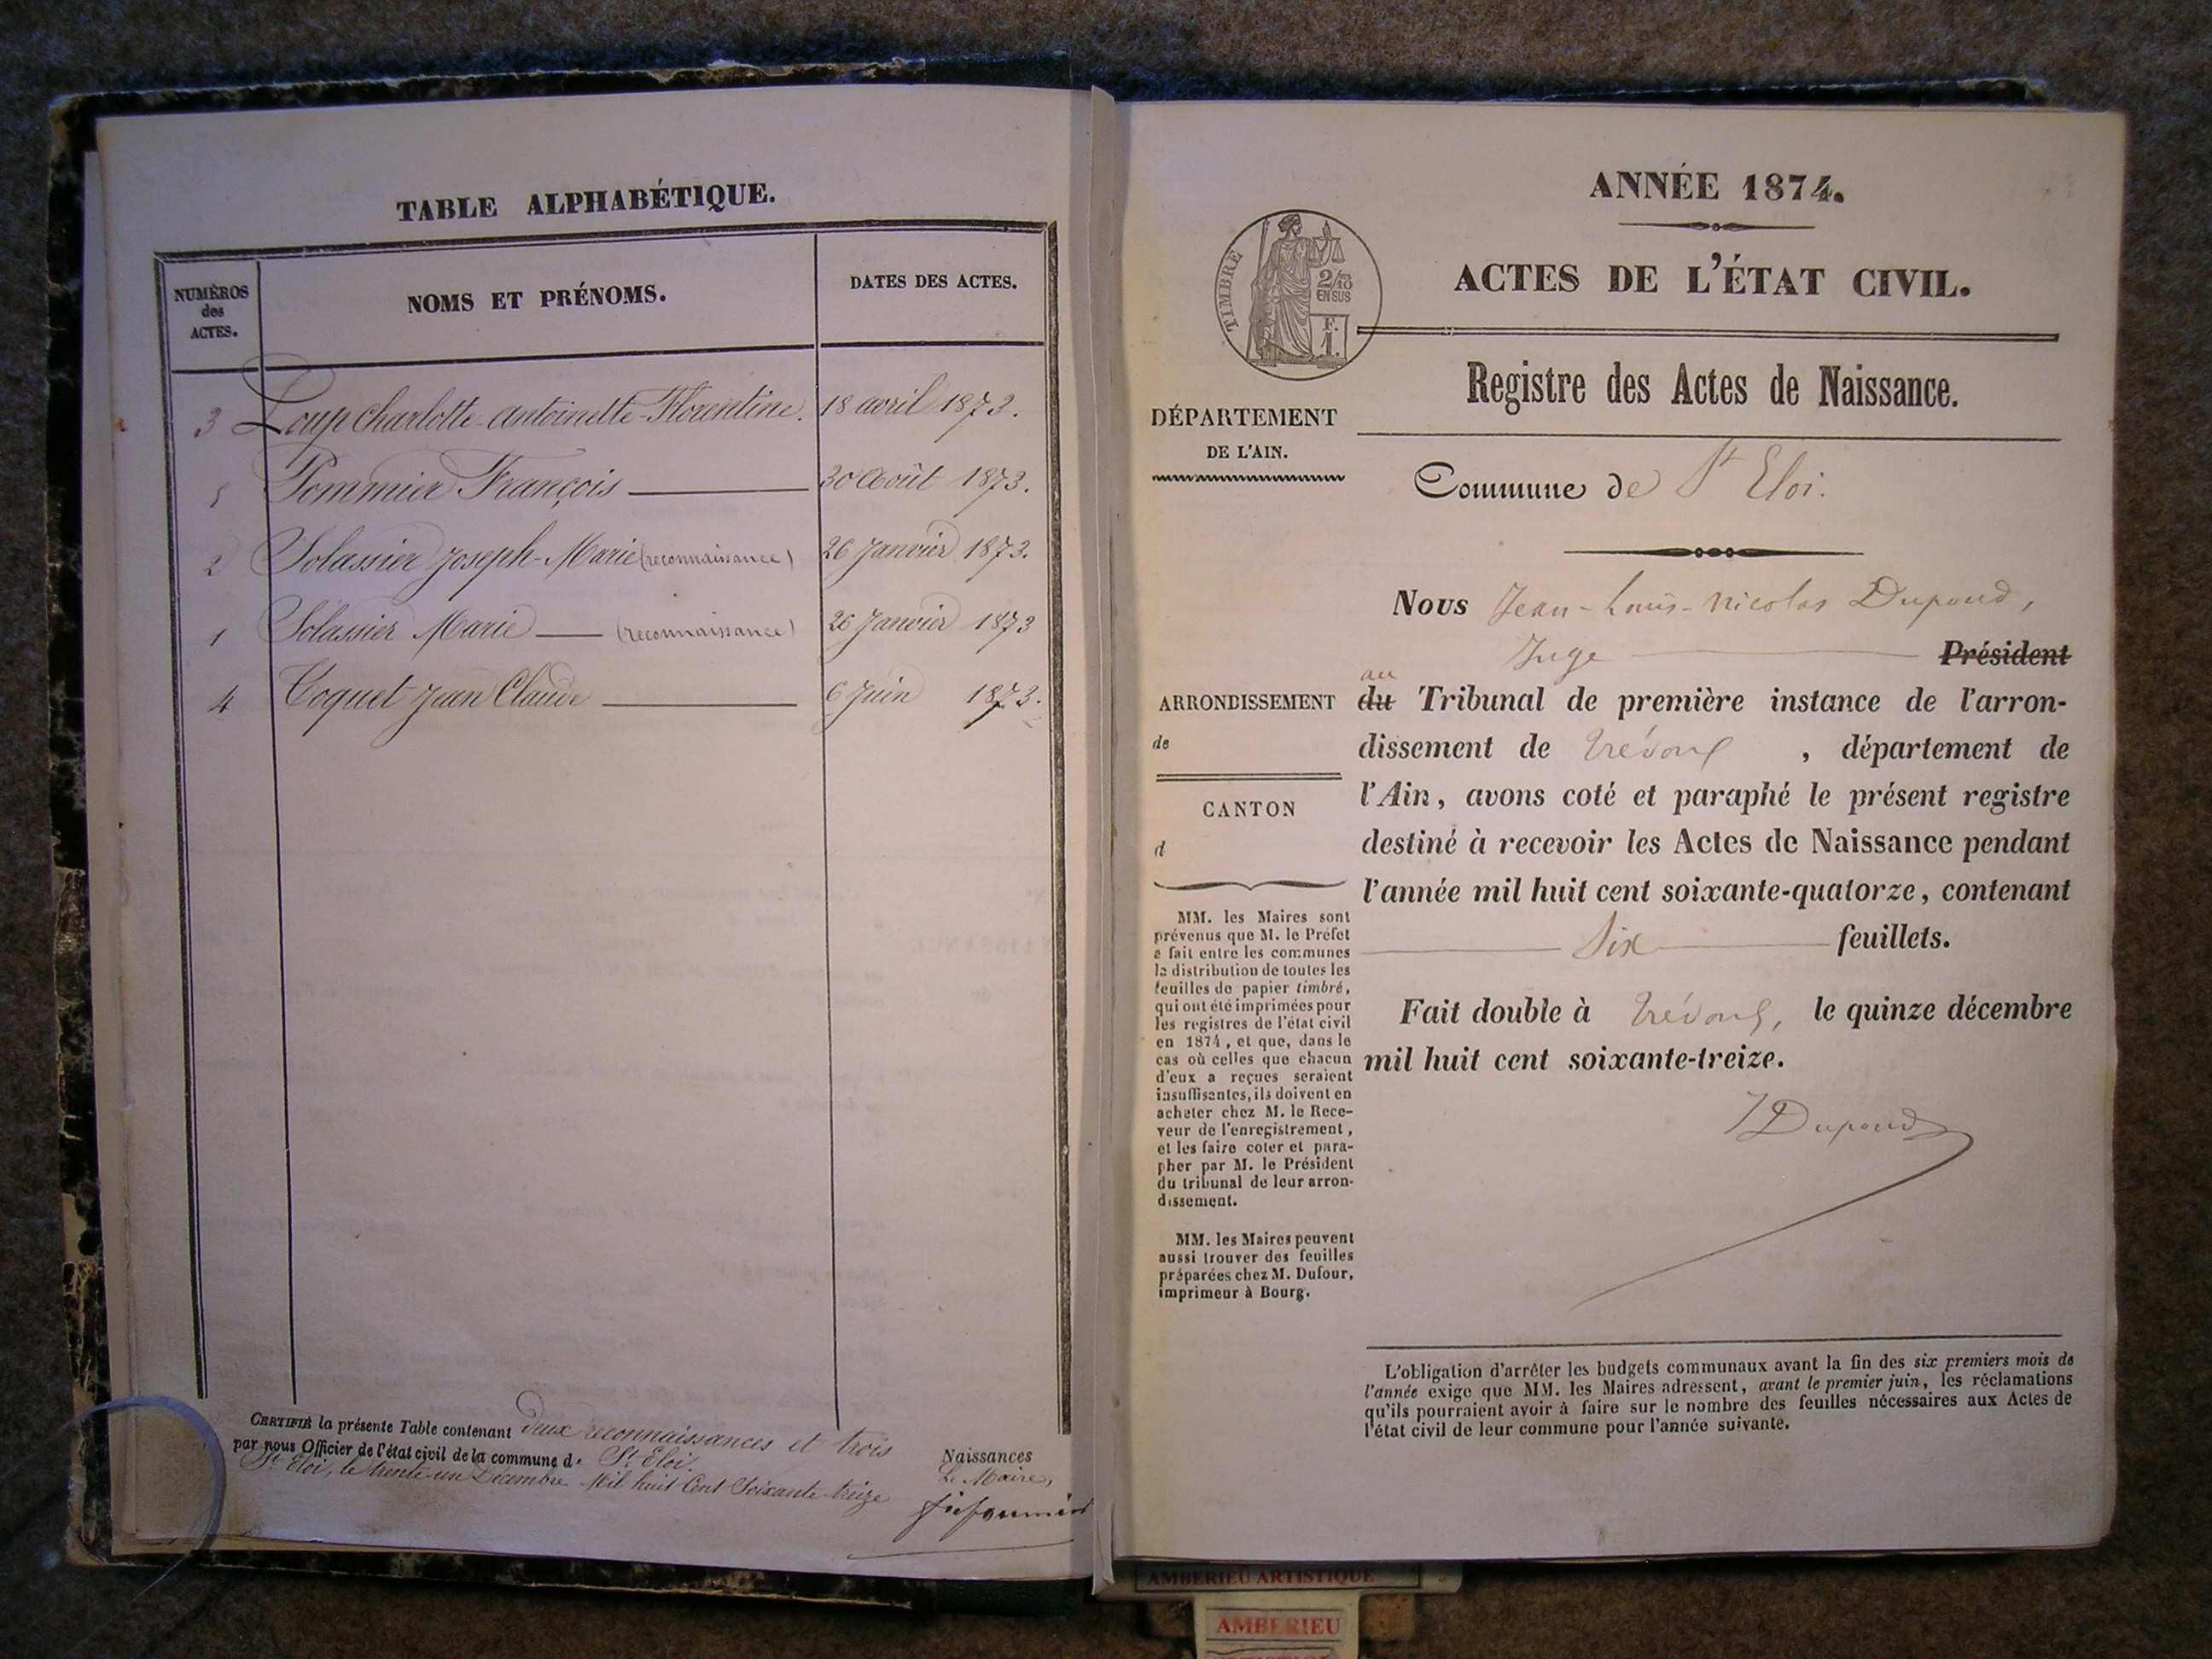 TABLE ALPHABÉTIQUE.
NUMÉROS
des
ACTES.
NOMS ET PRÉNOMS.
DATES DES ACTES.
3 Loup Charlotte-Antoinette-Florentine. 18 avril 1873.
5 Pommier François 30 Août 1873.
2 Solassier Joseph-Marie (reconnaissance) 26 Janvier 1873.
1 Solassier Marie (reconnaissance) 26 Janvier 1873
4 Toquet Jean Claude 6 Juin 1873.
CERTIFIÉ la présente Table contenant deux reconnaissances et trois Naissances
par nous Officier de l'état civil de la commune d. St Eloi.
St Eloi, le trente-un Décembre Mil huit Cent Soixante-treize
Le Maire,
ANNÉE 1874.
TIMBRE
2/10
EN SUS
F.
1.
ACTES DE L'ÉTAT CIVIL.
Registre des Actes de Naissance.
DÉPARTEMENT
DE L'AIN.
Commune de St Eloi.
Nous Jean-Louis-Nicolas Dupoud,
Juge Président
au
ARRONDISSEMENT
de
CANTON
d
du Tribunal de première instance de l'arron-
dissement de Trévoux, département de
l'Ain, avons coté et paraphé le présent registre
destiné à recevoir les Actes de Naissance pendant
l'année mil huit cent soixante-quatorze, contenant
Six feuillets.
Fait double à Trévoux, le quinze décembre
mil huit cent soixante-treize.
Dupoud
MM. les Maires sont
prévenus que M. le Préfet
a fait entre les communes
la distribution de toutes les
feuilles de papier timbré,
qui ont été imprimées pour
les registres de l'état civil
en 1874, et que, dans le
cas où celles que chacun
d'eux a reçues seraient
insuffisantes, ils doivent en
acheter chez M. le Rece-
veur de l'enregistrement,
et les faire coter et para-
pher par M. le Président
du tribunal de leur arron-
dissement.
MM. les Maires peuvent
aussi trouver des feuilles
préparées chez M. Dufour,
imprimeur à Bourg.
L'obligation d'arrêter les budgets communaux avant la fin des six premiers mois de
l'année exige que MM. les Maires adressent, avant le premier juin, les réclamations
qu'ils pourraient avoir à faire sur le nombre des feuilles nécessaires aux Actes de
l'état civil de leur commune pour l'année suivante.
AMBERIEU ARTISTIQUE
AMBERIEU